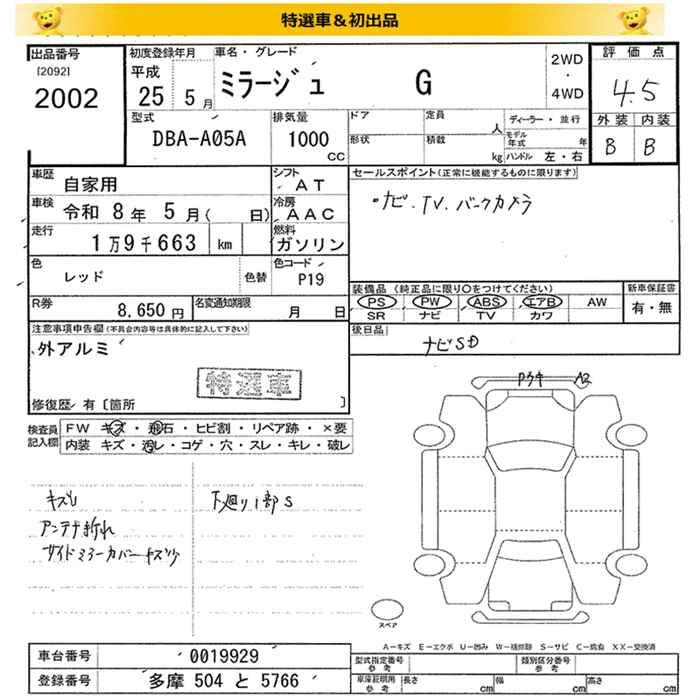 特選車＆初出品
出品番号
[2092]
2002
初度登録年月
平成
25 5月
車名・グレード
ミラージュ G
2WD
・
4WD
評価点
4.5
外装 内装
B B
型式
DBA-A05A
排気量
1000
CC
ドア
形状
定員
人
積載
kg
ディーラー・並行
モデル年式 年
ハンドル 左・右
車歴 自家用
シフト AT
車検 令和 8年 5月( 日)
冷房 AAC
走行 1万9千663 km
燃料 ガソリン
色 レッド 色替
色コード P19
R券 8,650円
名変通知期限 月 日
セールスポイント(正常に機能するものに限ります)
・ナビ.TV.バックカメラ
装備品 (純正品に限り○をつけてください)
PS PW ABS エアB AW
SR ナビ TV カワ
新車保証書
有・無
後日品
ナビSD
注意事項申告欄(不具合内容等は具体的に記入して下さい)
外アルミ
特選車
修復歴 有〔箇所 〕
検査員記入欄
FW キズ・飛石・ヒビ割・リペア跡・×要
内装 キズ・汚レ・コゲ・穴・スレ・キレ・破レ
アンテナ折れ
サイドミラーカバーキズ少
下廻り1部S
A2
スペア
A－キズ E－エクボ U－凹み W－補修跡 S－サビ C－腐食 XX－交換済
車台番号 0019929
登録番号 多摩 504 と 5766
型式指定番号
参考
類別区分番号
参考
車庫証明用
参考
長さ cm
幅 cm
高さ cm